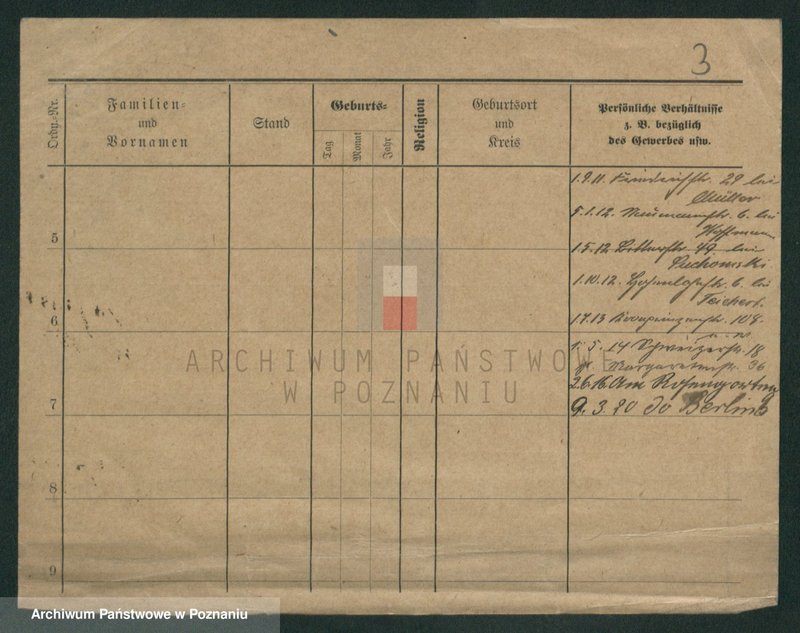 3
Ordn.-Nr.
Familien-
und
Vornamen
Stand
Geburts-
Tag
Monat
Jahr
Religion
Geburtsort
und
Kreis
Persönliche Verhältnisse
z. B. bezüglich
des Gewerbes usw.
1.9.11. 29 bei
Müller
5.1.12. 6. bei
Hoffmann
5
1.5.12. 49 bei
Suchomski
1.10.12. Hohenlohestr. 6. bei
Teichert.
6
1.7.13 Kronprinzenstr. 108.
1. 5. 14 Schweizerstr. 18
Margaretenstr. 36
26.16. Am Rosengarten
7
9. 3. 20 do Berlin
8
9
ARCHIWUM PAŃSTWOWE
W POZNANIU
Archiwum Państwowe w Poznaniu